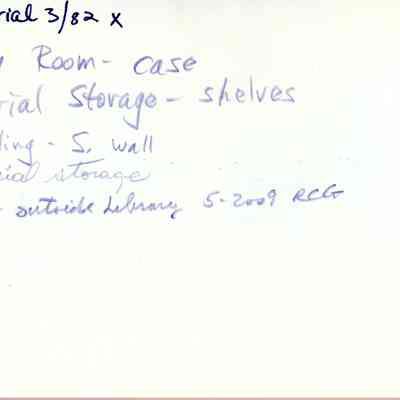 rial 3/82 x
Room- case
rial Storage - shelves
ling - S. wall
ial storage
- outside Library 5-2009 RCG